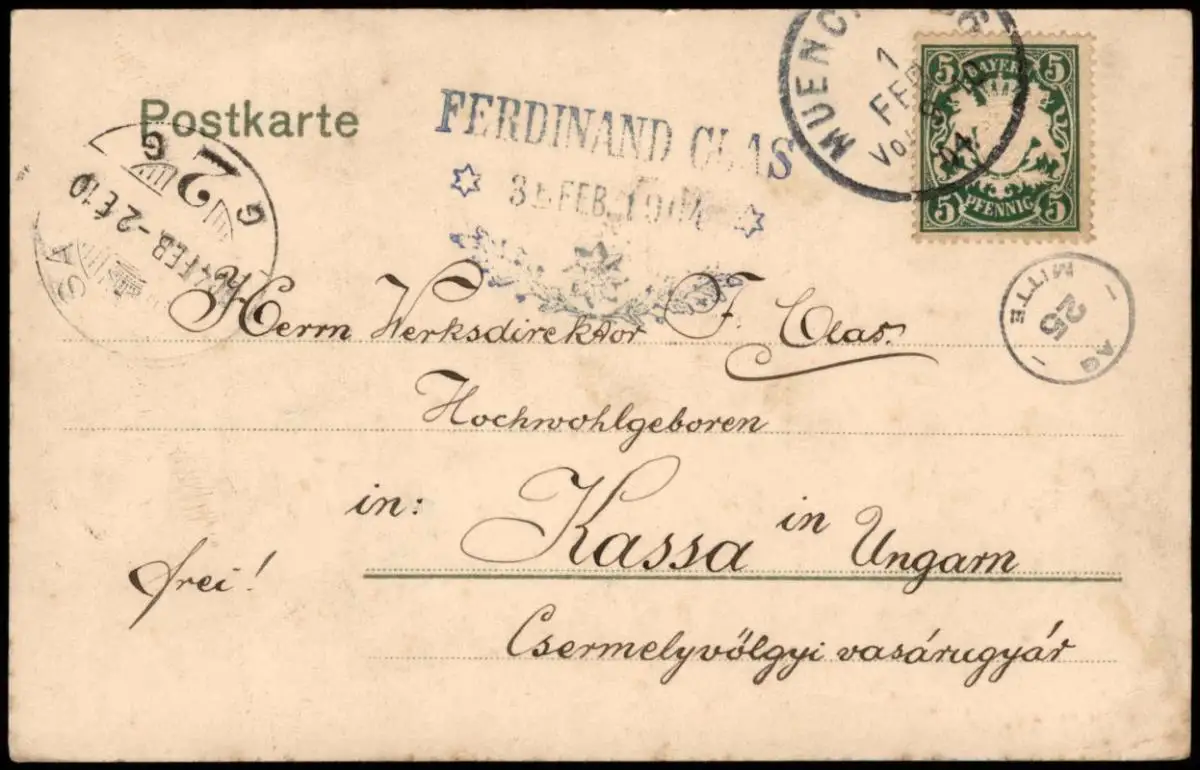 Postkarte
FERDINAND GLAS
FEB. 1904
MUENCH
1
FEB
Vo
04
5 BAYERN 5
5 PFENNIG 5
MITTE
25
AG
FEB. -2.E.10
Herrn Werksdirektor F. Glas.
Hochwohlgeboren
in: Kassa in Ungarn
frei!
Csermelyvölgyi vasárugyár